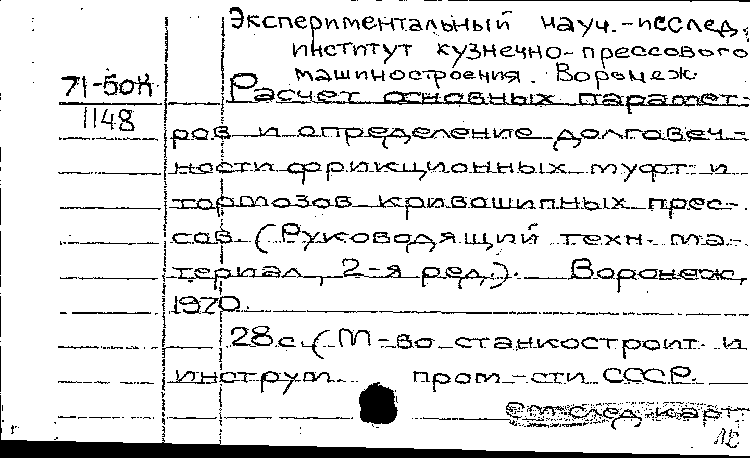 Экспериментальный науч.-исслед.
институт кузнечно-прессового
машиностроения. Воронеж
71-50к
1148
Расчет основных парамет-
ров и определение долговеч-
ности фрикционных муфт и
тормозов кривошипных прес-
сов. (Руководящий техн. ма-
териал, 2-я ред.). Воронеж,
1970.
28 с. (М-во станкостроит. и
инструм. пром-сти СССР.
См след. карт.